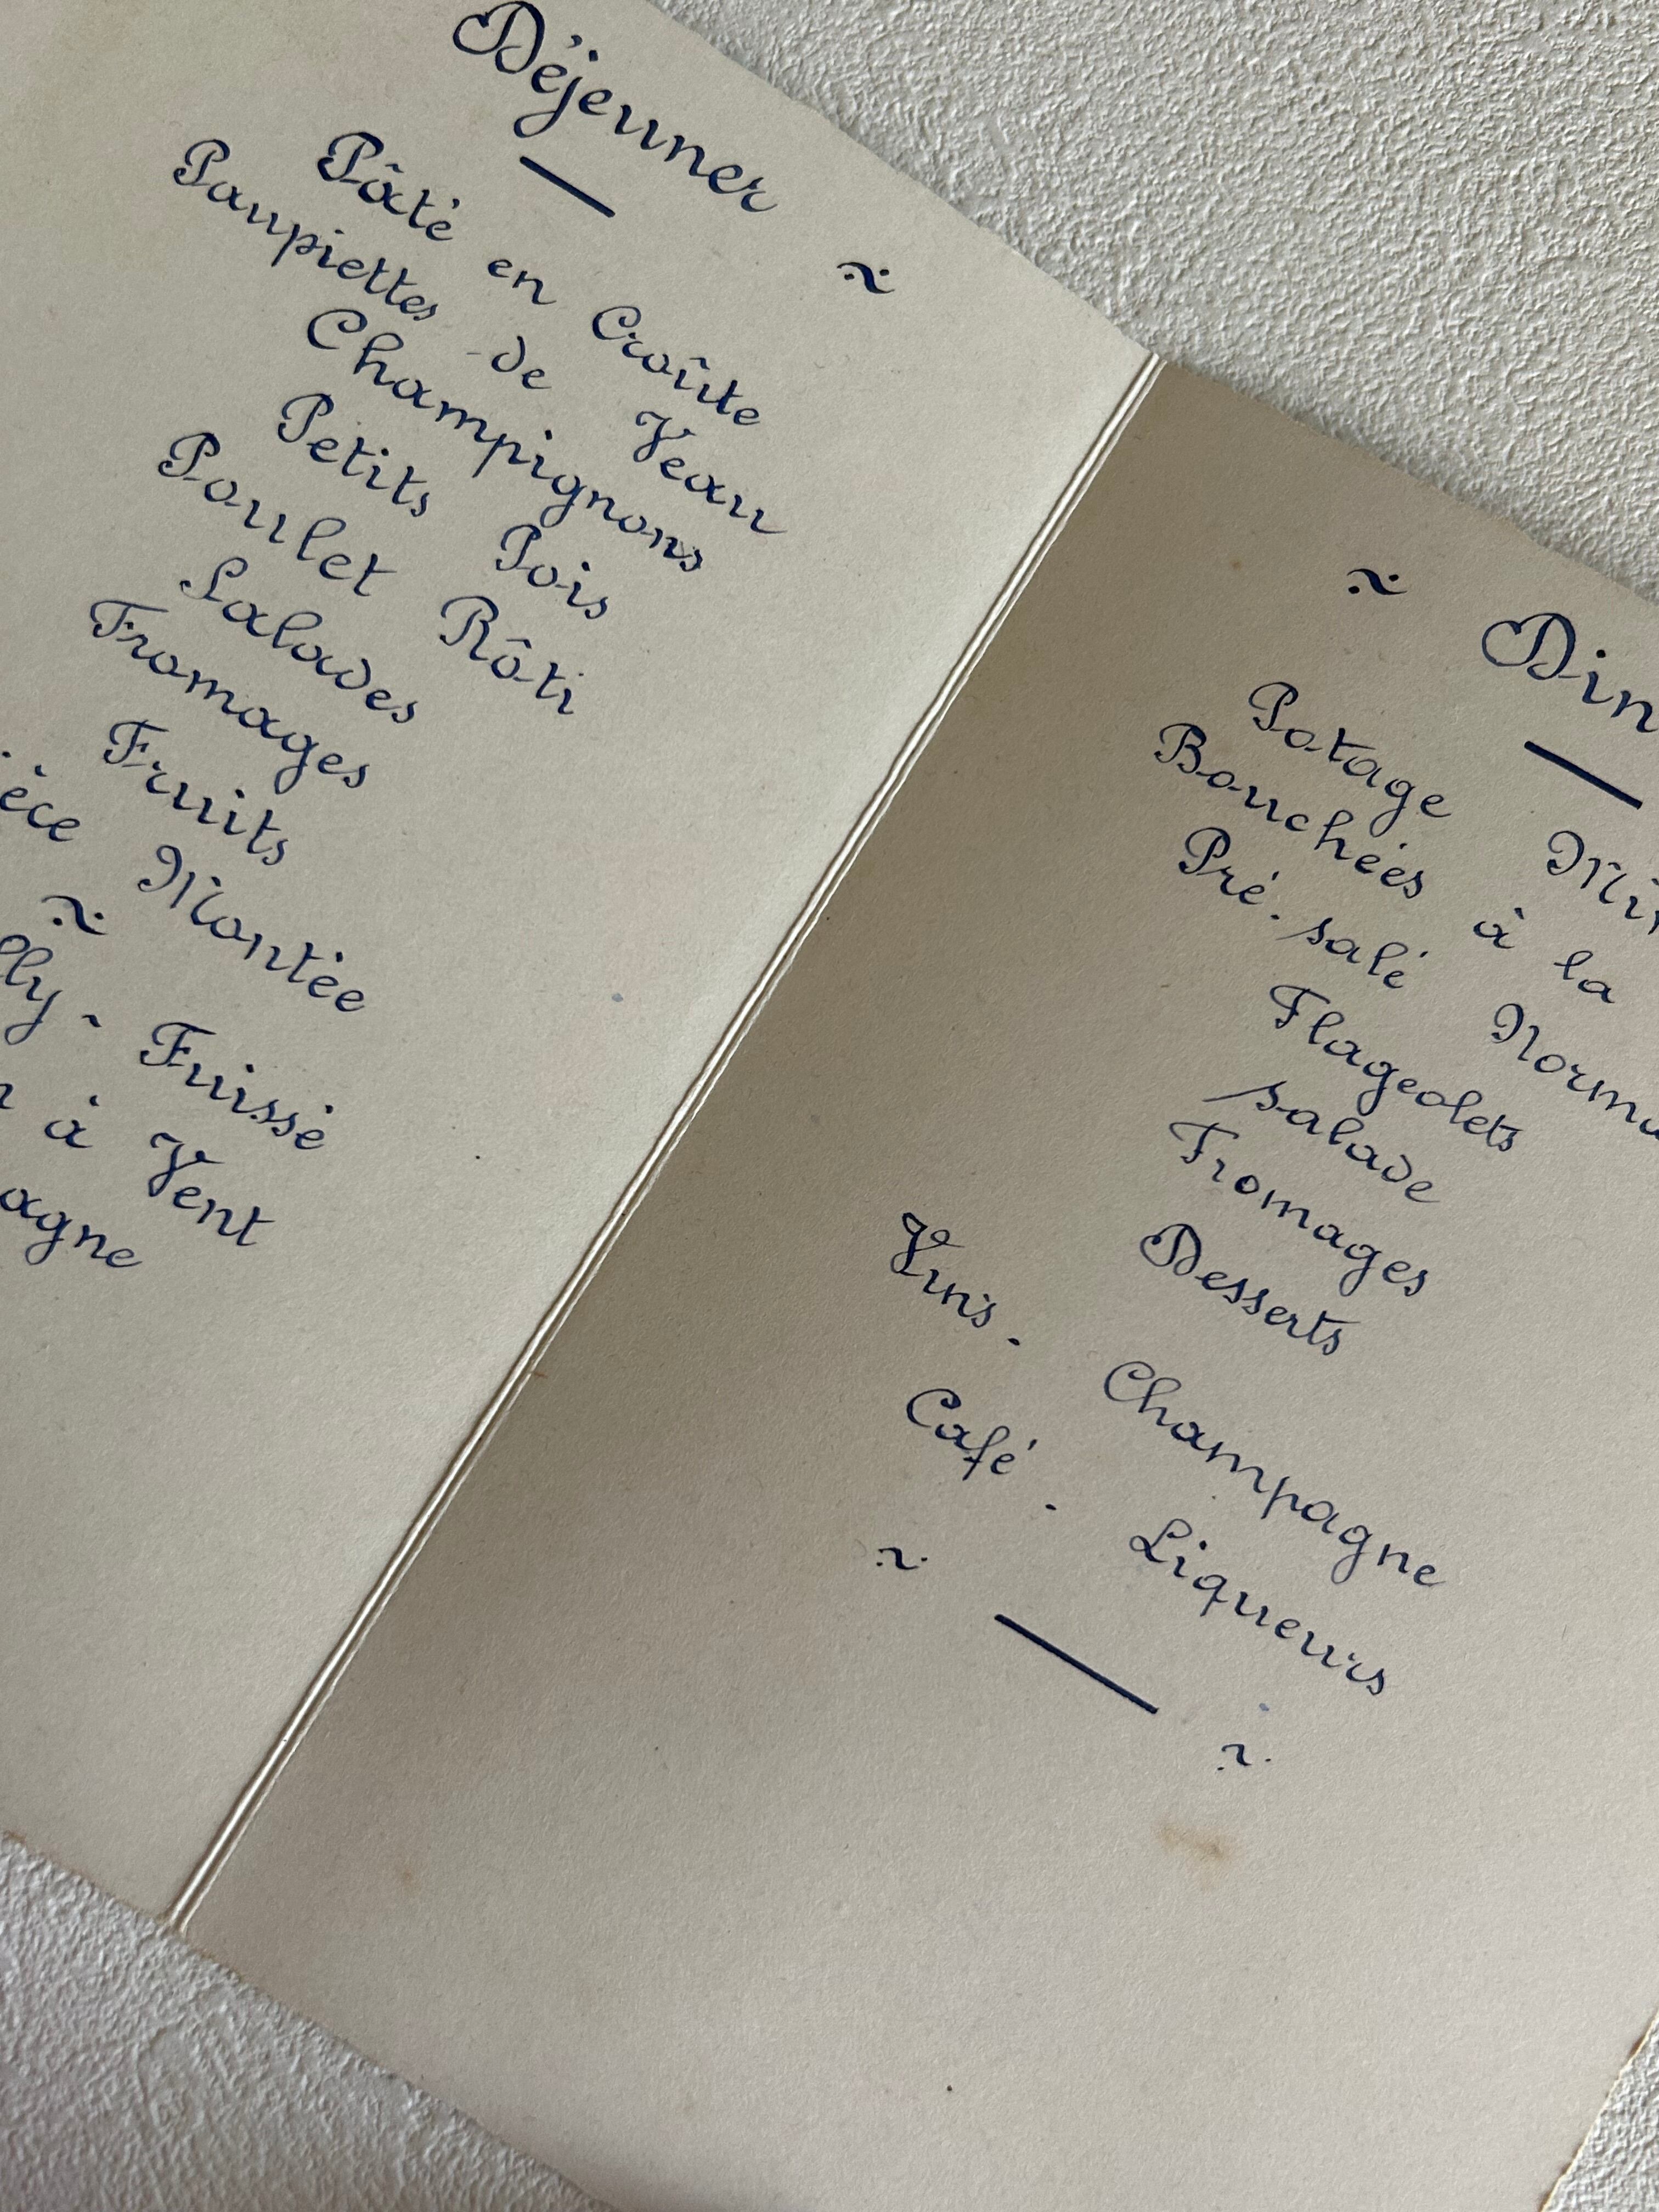 Déjeuner
Pâté en Croûte
Paupiettes de Veau
Champignons
Petits Pois
Poulet Rôti
Salades
Fromages
Fruits
èce Montée
lly - Fuissé
à Vent
agne
Din
Potage Mi
Bouchées à la
Pré-salé Norm
Flageolets
Salade
Fromages
Desserts
Vins - Champagne
Café - Liqueurs